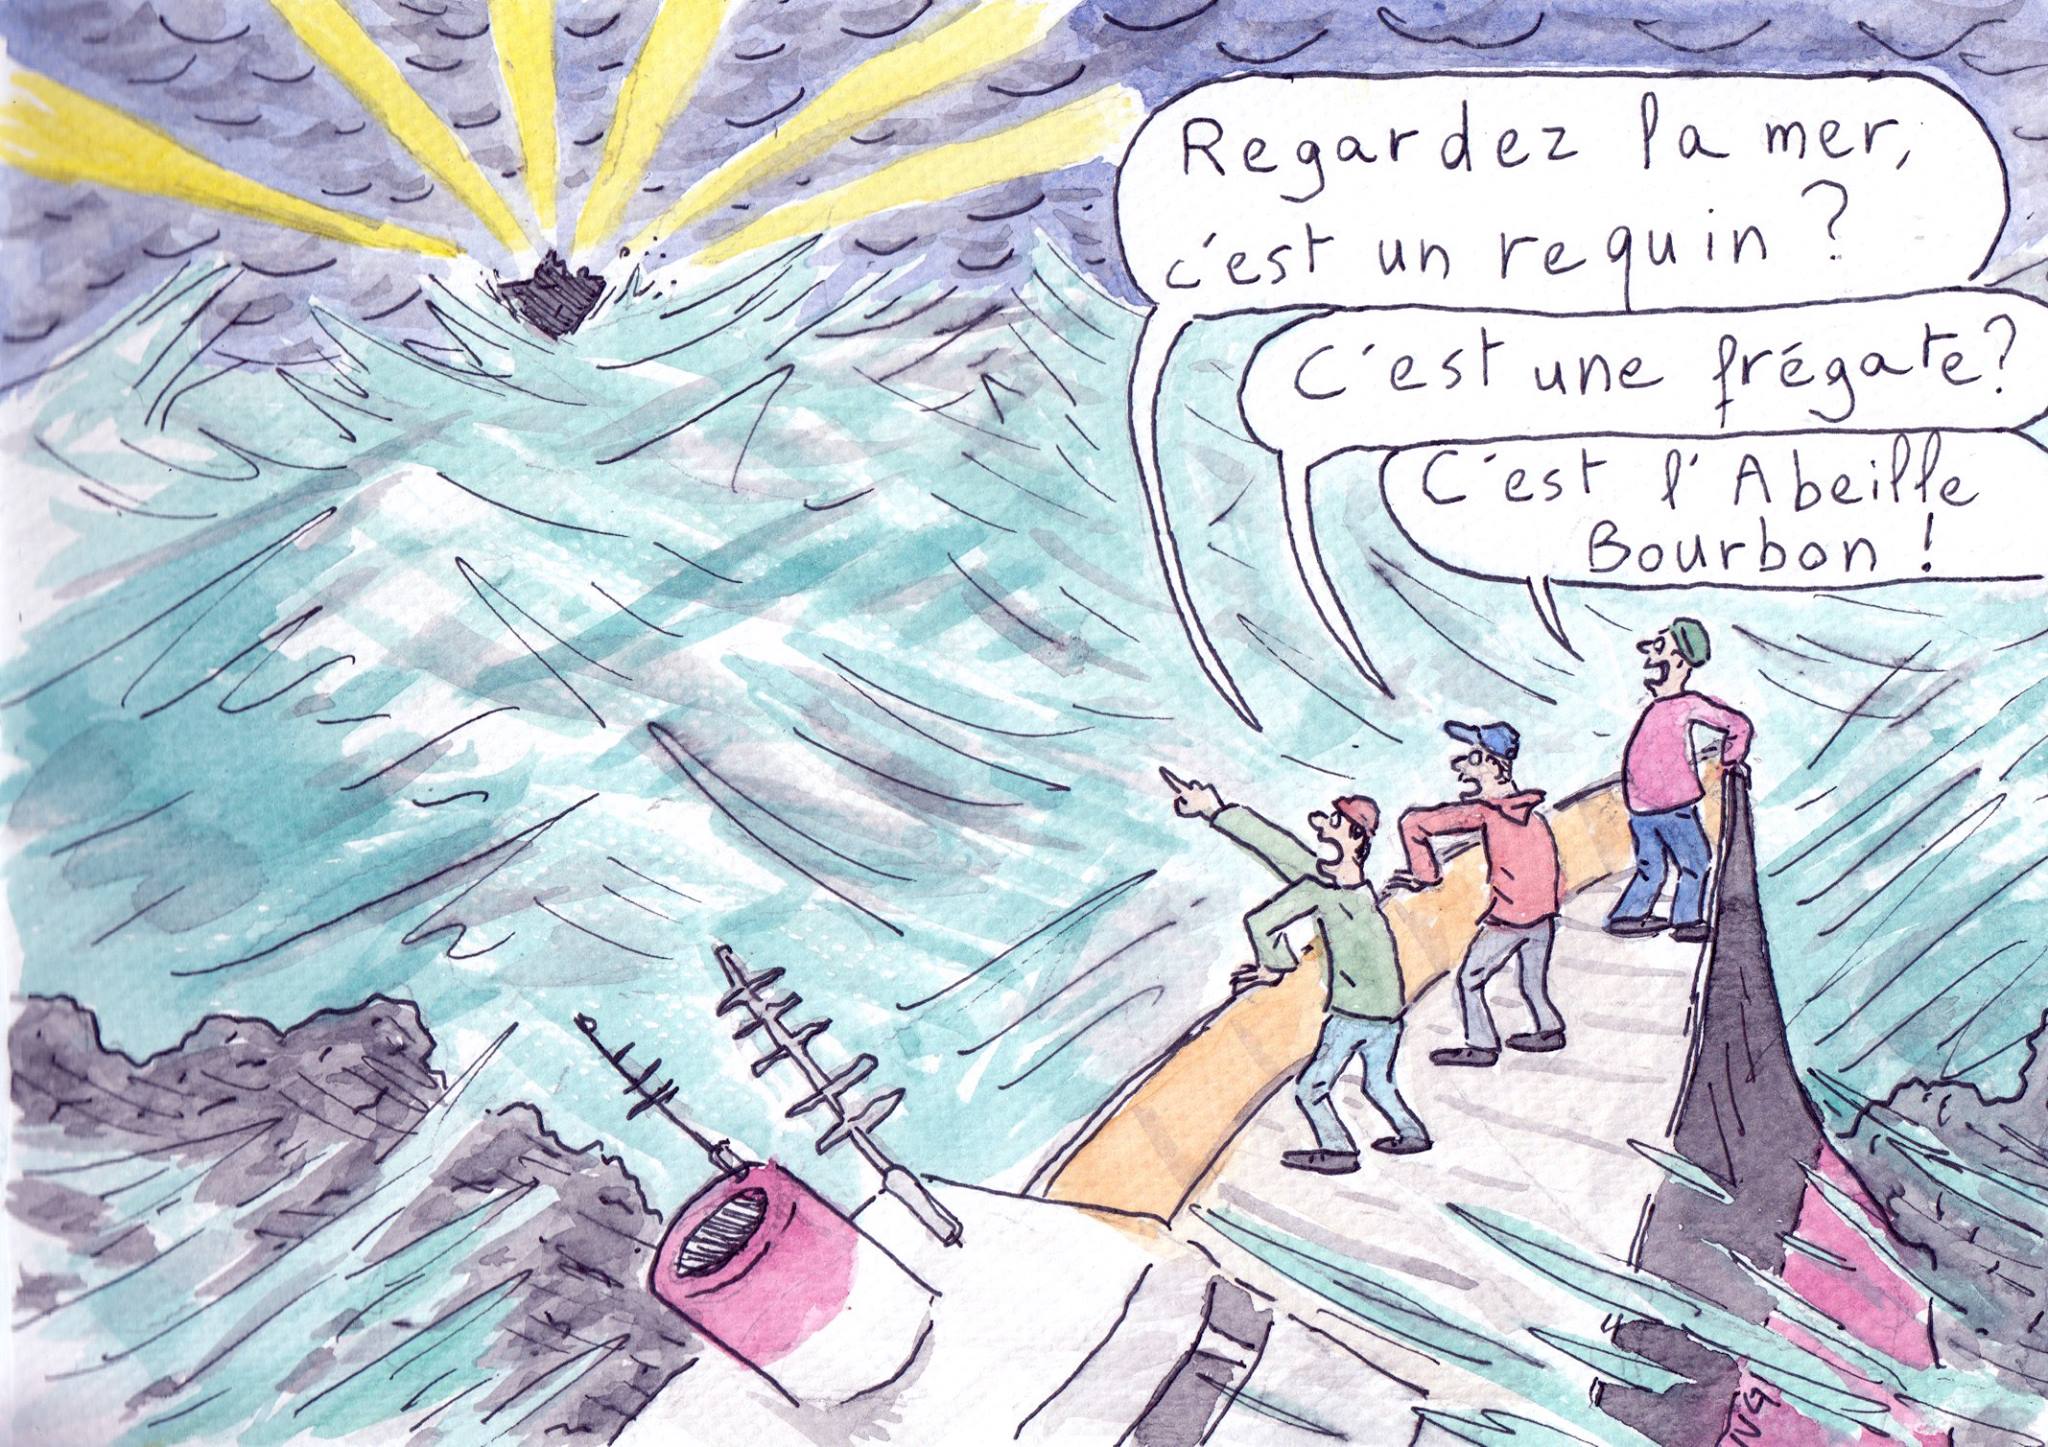 Regardez la mer,
c'est un requin ?
C'est une frégate ?
C'est l'Abeille
Bourbon !